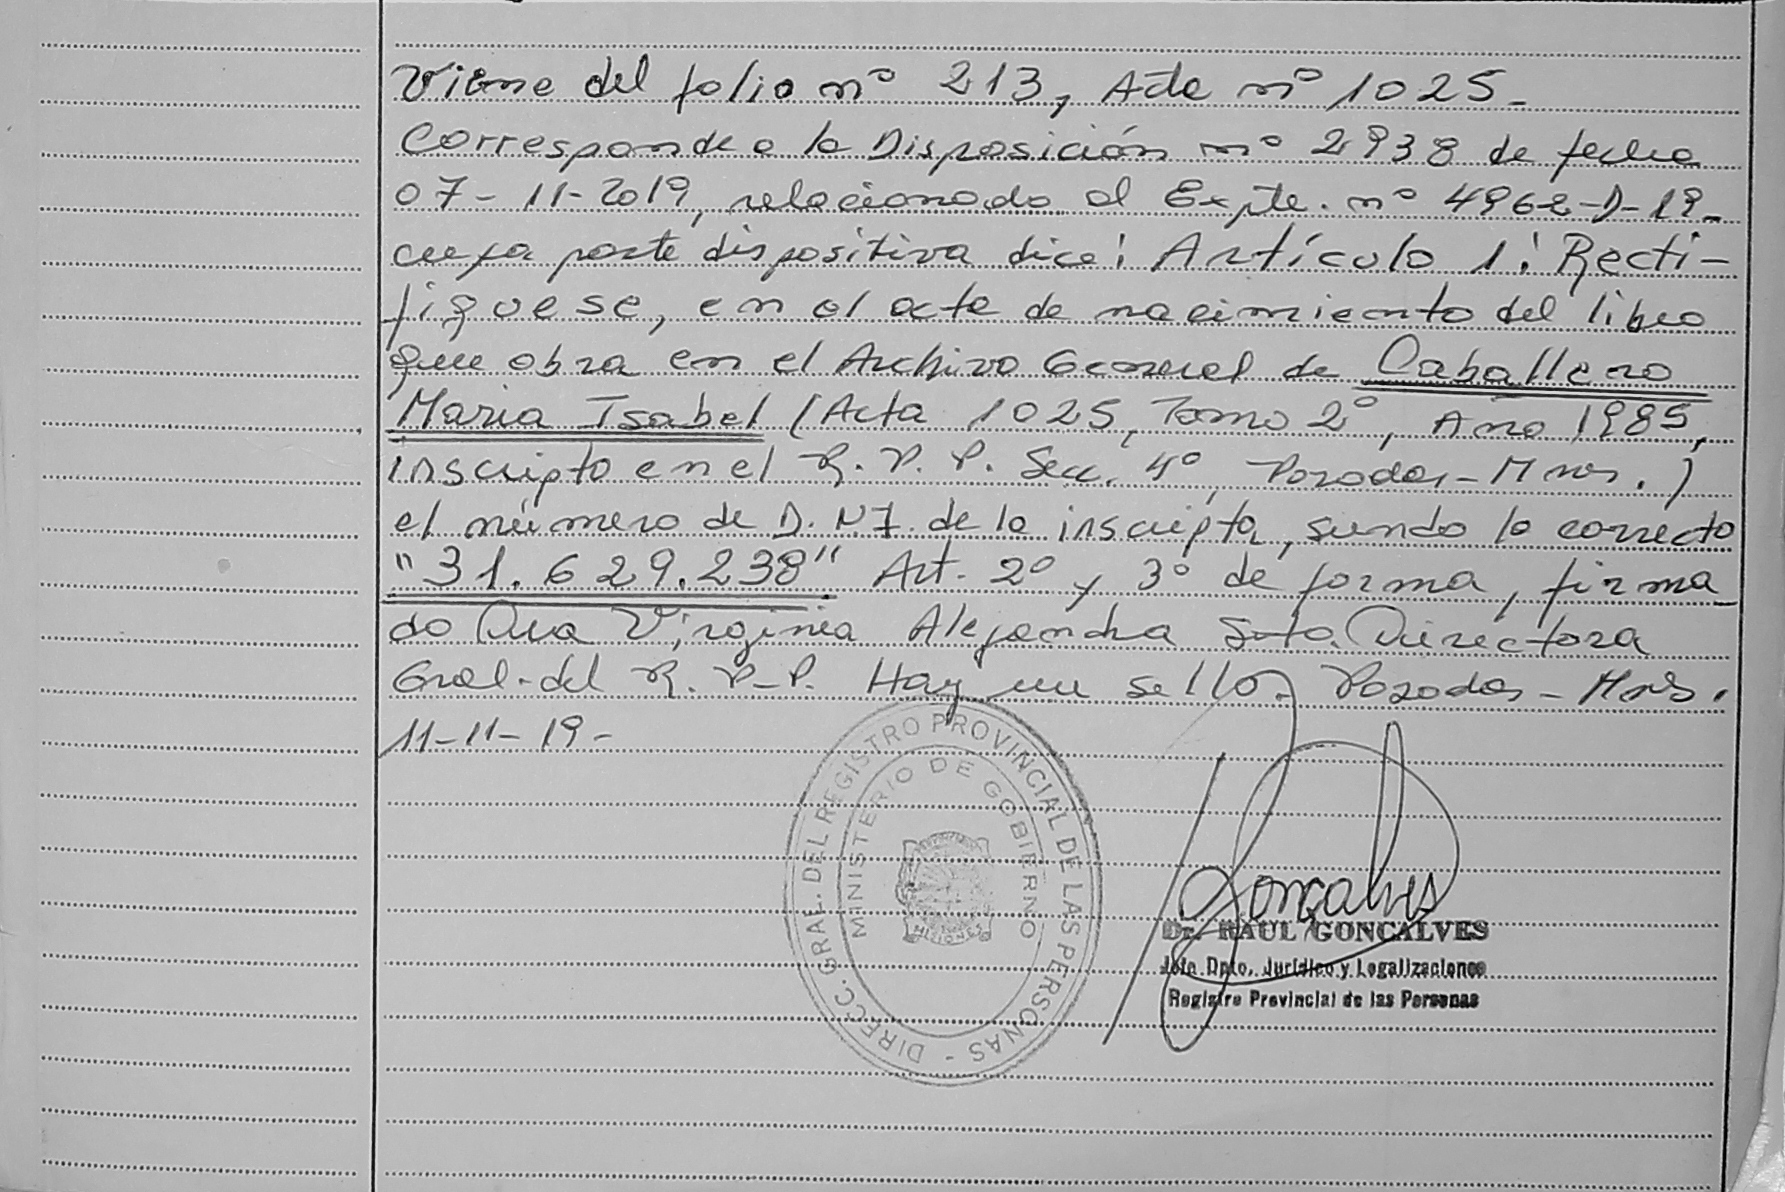 Viene del folio nº 213, Acta nº 1025-
Corresponde a la Disposición nº 2938 de fecha
07-11-2019, relacionado al Expte. nº 4962-D-19-
cuya parte dispositiva dice: Artículo 1: Recti-
fiquese, en el acta de nacimiento del libro
que obra en el Archivo General de Caballero
Maria Isabel (Acta 1025, Tomo 2º, Año 1985,
inscripto en el R. P. P. Secc. 4º, Posadas-Mnes.)
el número de D.N.I. de la inscripta, siendo lo correcto
"31.629.238" Art. 2º y 3º de forma, firma
do Dra Virginia Alejandra Soto. Directora
Gral. del R. P-P. Hay un sello. Posadas-Mnes.
11-11-19-
DIRECC. GRAL. DEL REGISTRO PROVINCIAL DE LAS PERSONAS -
MINISTERIO DE GOBIERNO
MISIONES
Gonçalves
Dr. RAUL GONCALVES
Jefe Dpto. Jurídico y Legalizaciones
Registro Provincial de las Personas